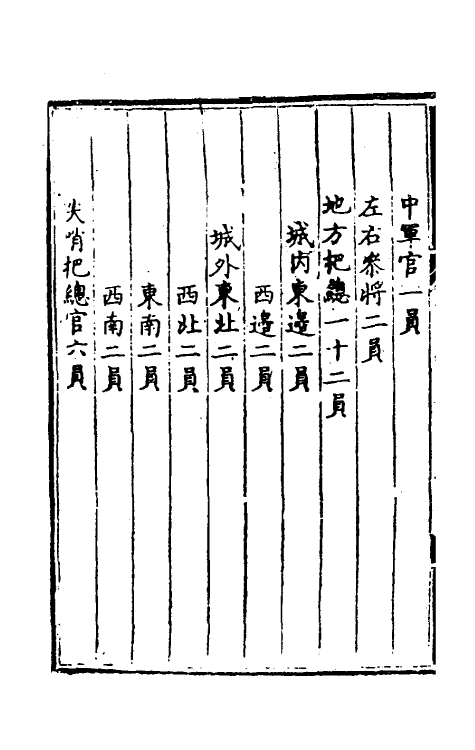 中軍官一員
左右叅將二員
地方把緫一十二員
城内東邊二員
西邊二員
城外東北二員
西北二員
東南二員
西南二員
尖哨把總官六員